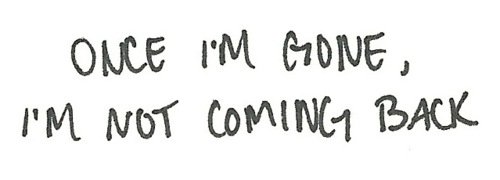 ONCE I'M GONE,
I'M NOT COMING BACK